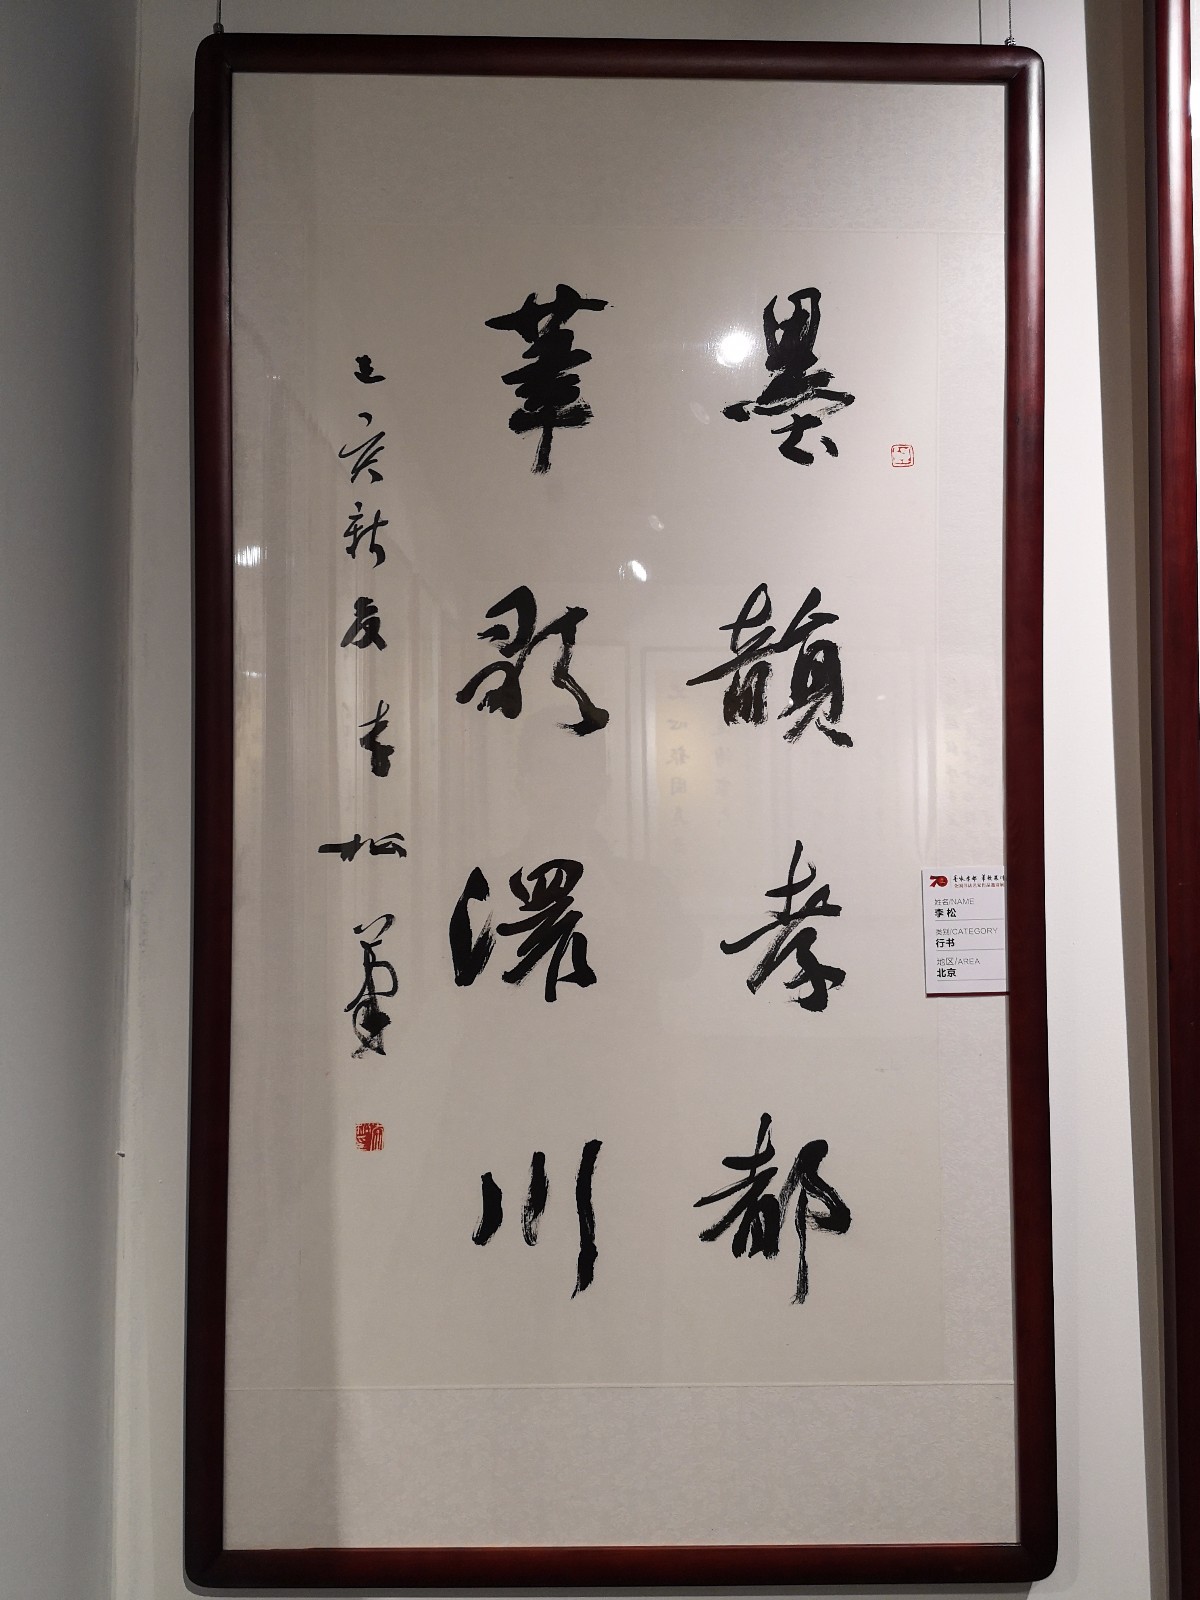 墨韻孝都
筆歌漯川
己亥新夏李松筆
姓名/NAME
李松
类别/CATEGORY
行书
地区/AREA
北京